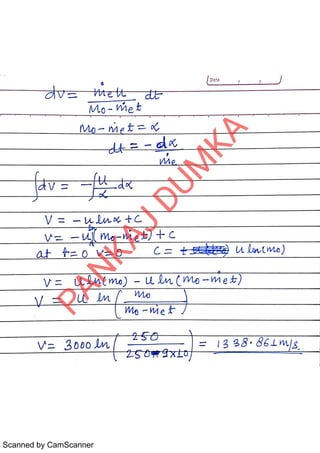 Date
dv = ṁe u / (M0 - ṁe t) dt
M0 - ṁe t = x
dt = - dx / ṁe
∫dv = -∫ u/x dx
V = - u ln x + C
V = - u ln (m0 - ṁe t) + C
at t=0 V=0 C = u ln(m0)
V = u ln(m0) - u ln (m0 - ṁe t)
V = u ln ( m0 / (m0 - ṁe t) )
V = 3000 ln ( 250 / (250 - 9x10) ) = 1338.861 m/s.
PANKAJ DUMKA
Scanned by CamScanner